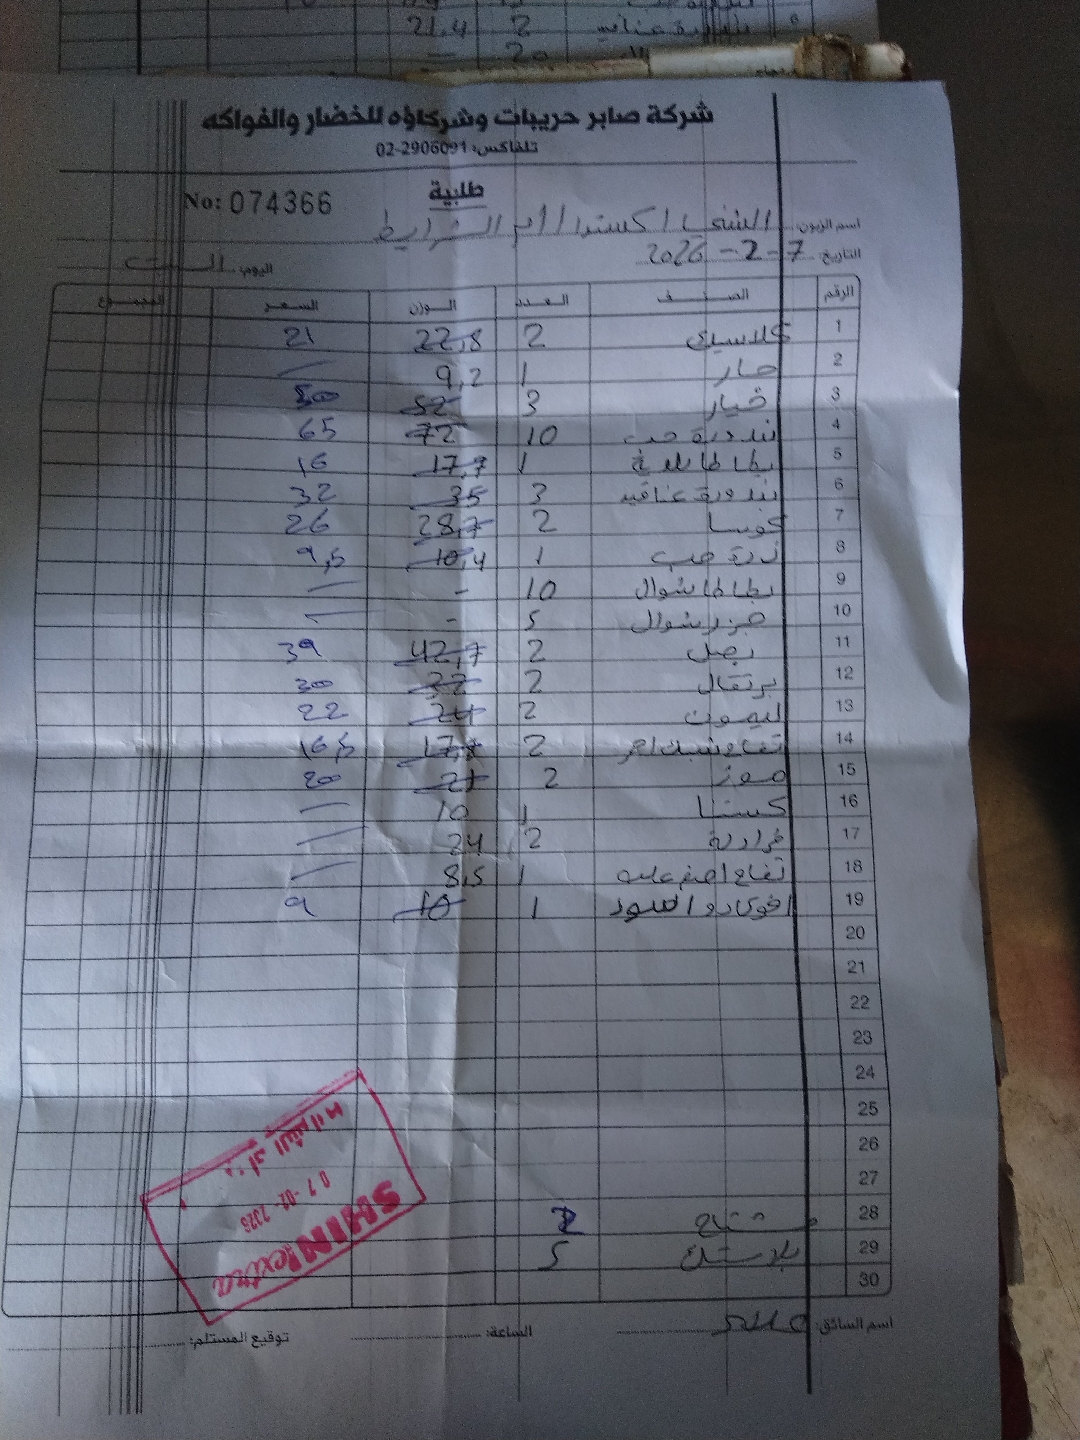 21.4 2
20
شركة صابر حريبات وشركاؤه للخضار والفواكه
تلفاكس: 02-2906091
طلبية
No: 074366
اسم الزبون: الشني اكسترا / ام الشرايط
التاريخ: 7-2-2026
اليوم: السبت
الرقم الصنف العدد الوزن السعر المجموع
1 كلاسيك 2 22,8 21
2 حار 1 9,2 —
3 خيار 3 52 50
4 بندورة حب 10 72 65
5 بطاطا 1 17,7 16
6 بندورة عناقيد 3 35 32
7 كوسا 2 28,7 26
8 ذرة حب 1 10,4 9,5
9 بطاطا شوال 10 - —
10 جزر شوال 5 - —
11 بصل 2 42,7 39
12 برتقال 2 32 30
13 ليمون 2 24 22
14 تفاح سبتك احمر 2 17,7 16,5
15 موز 2 21 20
16 كستنا 1 10 —
17 2 24 —
18 تفاح اخضر 1 8,5 —
19 افوكادو 1 10 9
20
21
22
23
24
25
26
27
28 مشتاح 2
29 بلاستيك 5
30
SHINI extra
07-02-2026
ام الشرايط
اسم السائق:
الساعة:
توقيع المستلم: